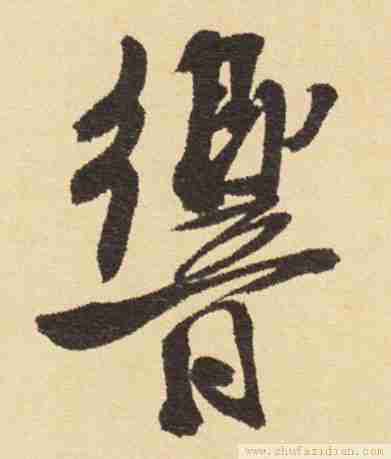 響
www.shufazidian.com